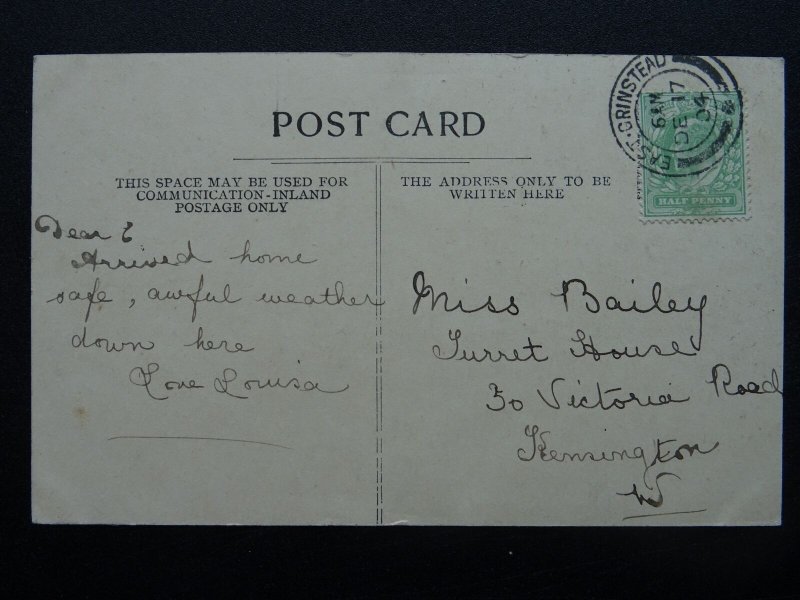 POST CARD
THIS SPACE MAY BE USED FOR
COMMUNICATION-INLAND
POSTAGE ONLY
THE ADDRESS ONLY TO BE
WRITTEN HERE
EAST-GRINSTEAD
6 AM
DE 17
04
HALF PENNY
Dear E
Arrived home
safe, awful weather
down here
Love Louisa
Miss Bailey
Turret House
30 Victoria Road
Kensington
W